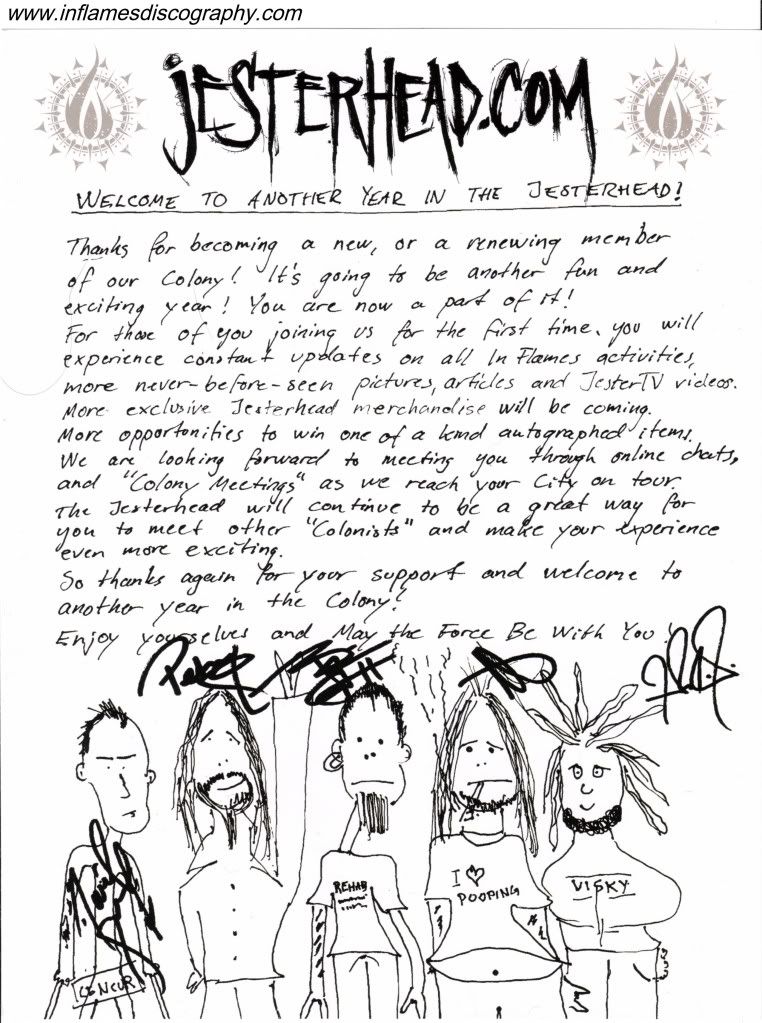 www.inflamesdiscography.com
JESTERHEAD.COM
WELCOME TO ANOTHER YEAR IN THE JESTERHEAD!
Thanks for becoming a new, or a renewing member
of our Colony! It's going to be another fun and
exciting year! You are now a part of it!
For those of you joining us for the first time, you will
experience constant updates on all In Flames activities,
more never-before-seen pictures, articles and JesterTV videos.
More exclusive Jesterhead merchandise will be coming.
More opportonities to win one of a kind autographed items.
We are looking forward to meeting you through online chats,
and "Colony Meetings" as we reach your City on tour.
The Jesterhead will continue to be a great way for
you to meet other "Colonists" and make your experience
even more exciting.
So thanks again for your support and welcome to
another year in the Colony!
Enjoy yourselves and May the Force Be With You!
REHAB
I ♥
POOPING
VISKY